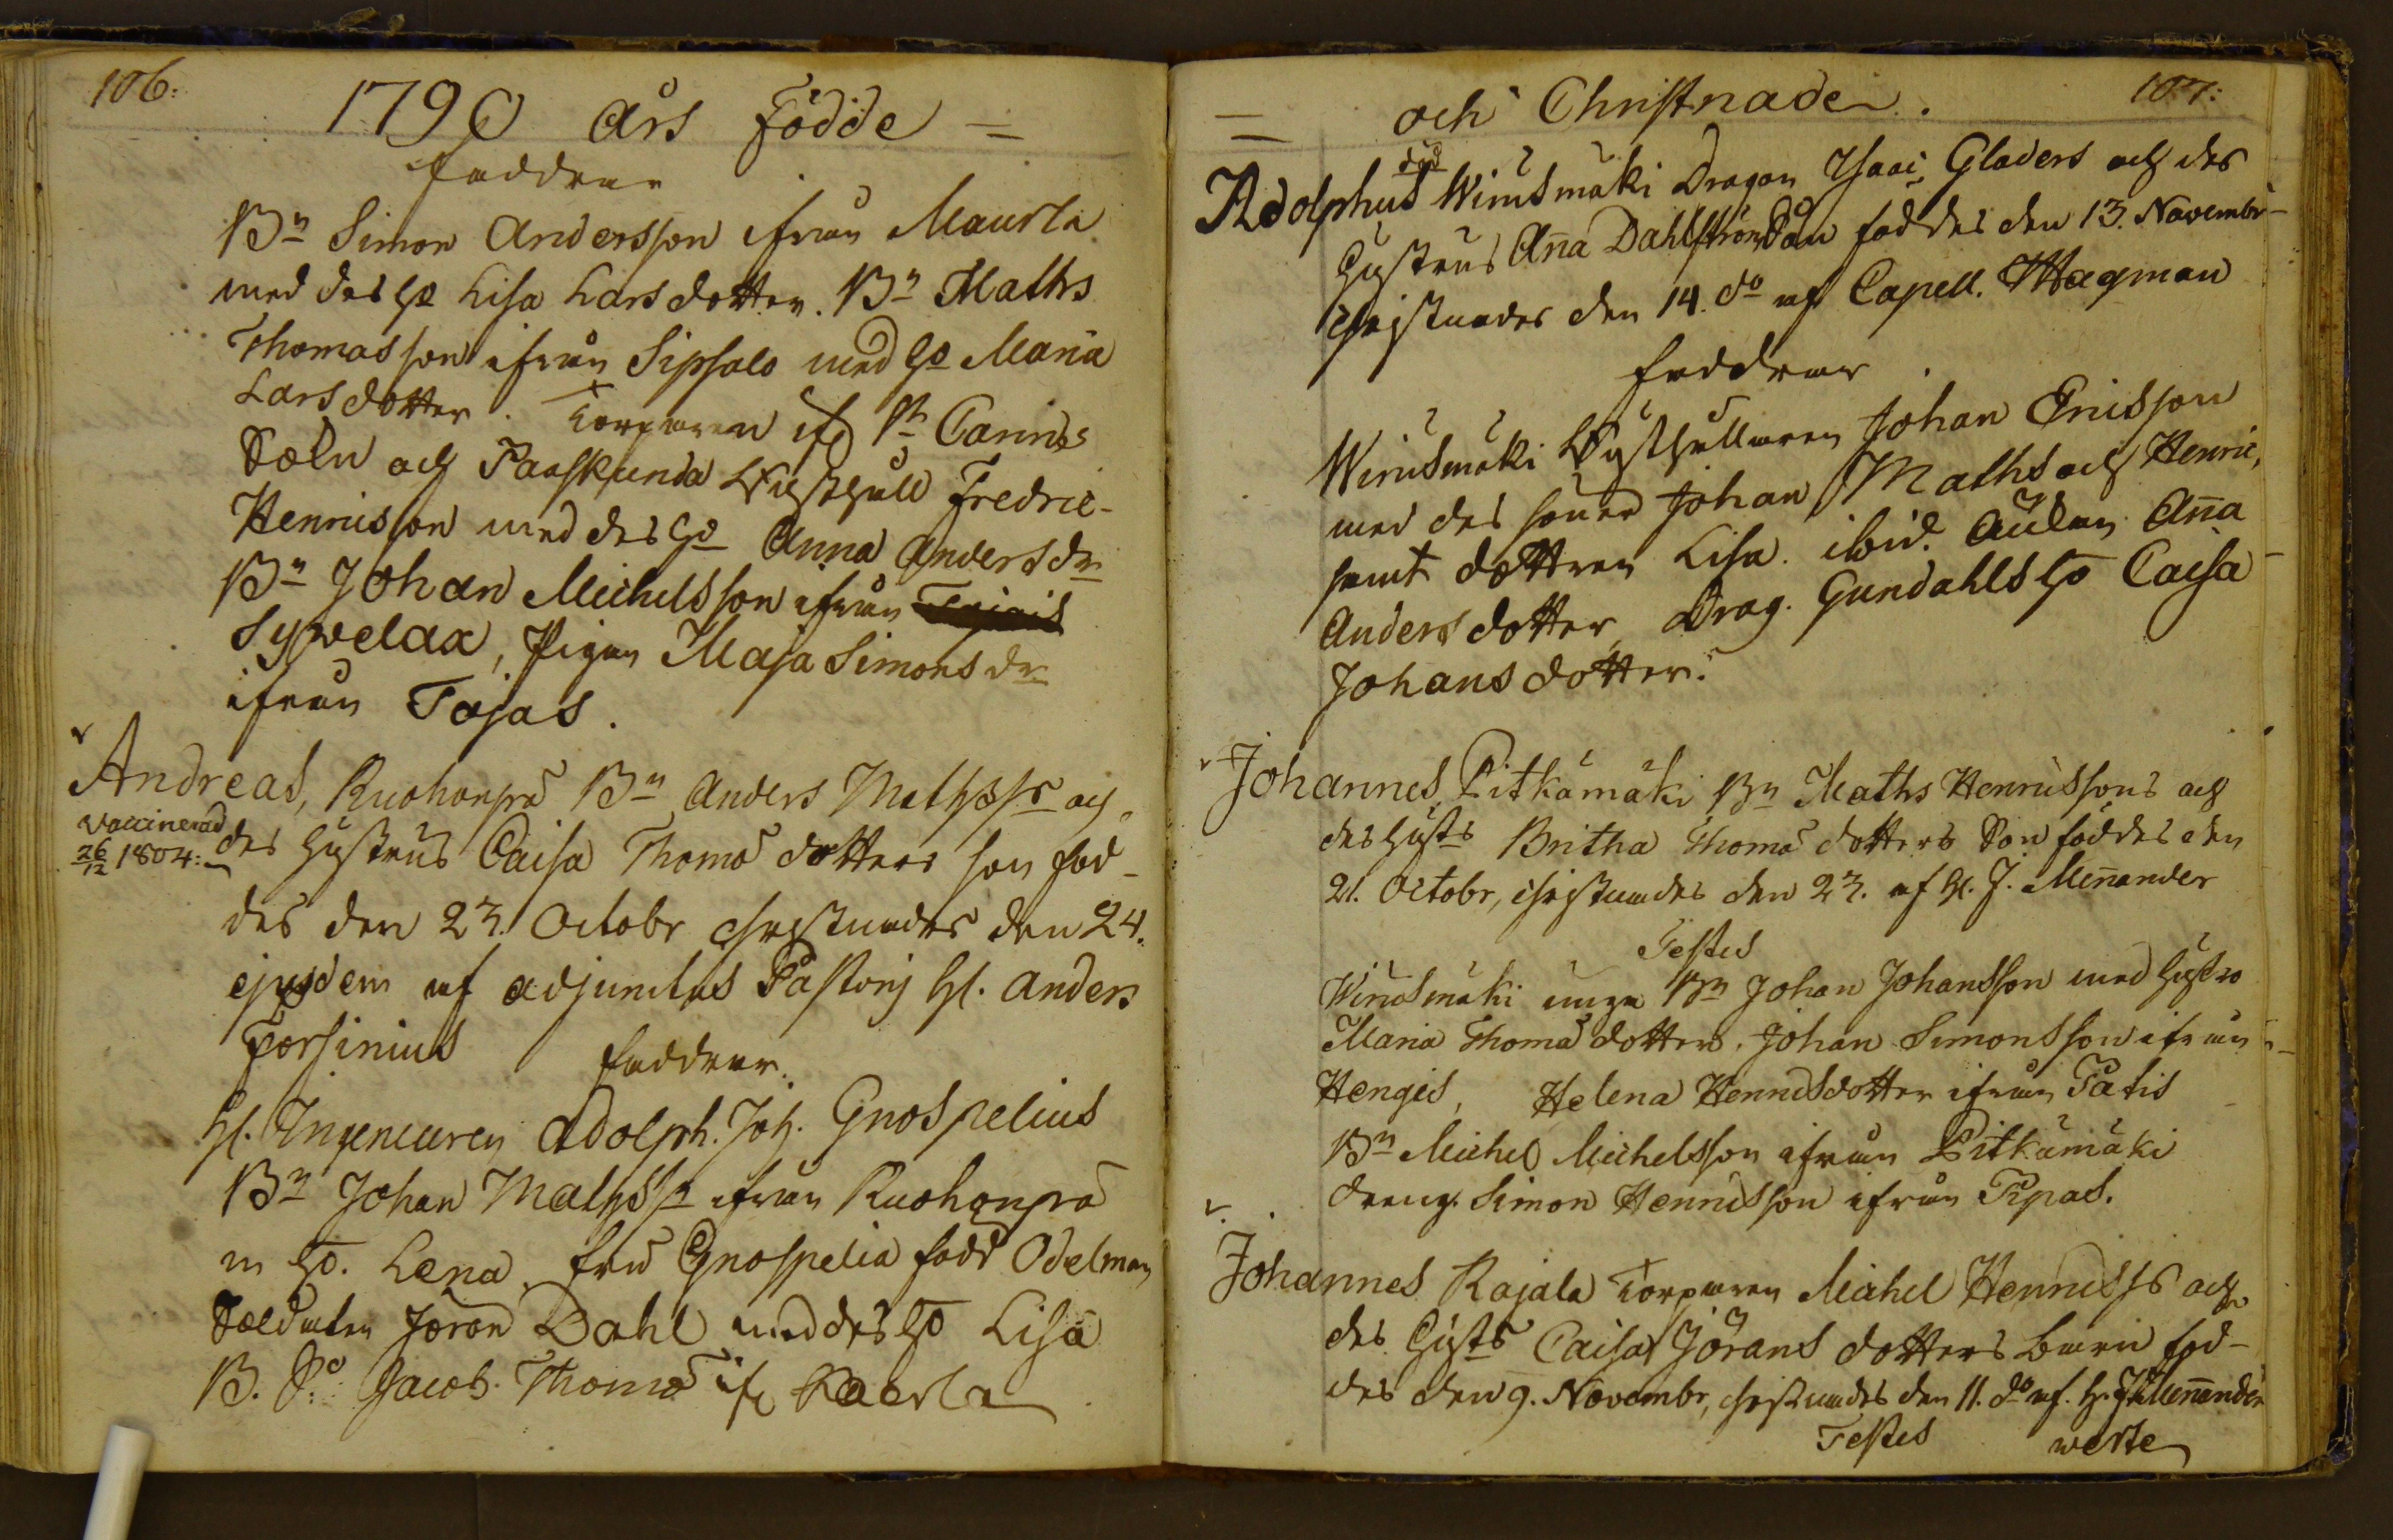 106:
1790 års Födde =
faddrar
Bn Simon Andersson ifrån Maurla
med des ho Lisa Larsdotter. Bn Maths
Thomasson ifrån Sipsalo med ho Maria
Larsdotter. Torparen if St Carins
Soln och Paaskunda Wästhåll Fredric-
Henricsson med des ho Anna Andersdr
Bn Johan Michelsson ifrån
Sywelax, Pigan Maja Simonsdr
ifrån Tojas.
v
Andreas, Ruohonpä Bn Anders Mathss och
Vaccinerad
26/12 1804:
des hustrus Caisa Thomædotters son föd-
des den 23. Octobr christnades den 24.
ejusdem af adjunctus Pastorij H. Anders
Forsinius faddrar.
H. Ingeneuren Adolph. Joh. Gnospelius
Bn Johan Mathss ifrån Ruohonpä
m ho. Lena, fru Gnospelia född Odelman
Soldaten Jöran Dahl med des ho Lisa
B. So: Jacob Thomæ if Kaerla
107:
= och Christnade.
död
Adolphus Wirusmäki Dragon Isaac Gladers och des
hustrus Aña Dahlström Son föddes den 13. Novembr-
christnades den 14. do af Capell. Wagman
faddrar
Wirusmäki Rusthållaren Johan Ericsson
med des söner Johan, Maths och Henric,
samt dottren Lisa. ibid. Änkan Aña
Andersdotter, Drag. Gundahls ho Caisa
Johansdotter.
v Johannes Pitkämäki Bn Maths Henricssons och
des husts Britha Thomædotters Son föddes den
21. Octobr, christnades den 23. af H. J. Meñander
Testes
Wirusmäki unga Bn Johan Johansson med hustro
Maria Thomædotter. Johan Simonsson ifrån
Hengis, Helena Henricsdotter ifrån Patis
Bn Michel Michelsson ifrån Pitkämäki
dräng. Simon Henricsson ifrån Pipas.
v.
Johannes Rajala Torparen Michel Henricss och
des husts Caisa Jöransdotters barn föd-
des den 9. Novembr, christnades den 11. do af. H. J. Meñander
Testes werte